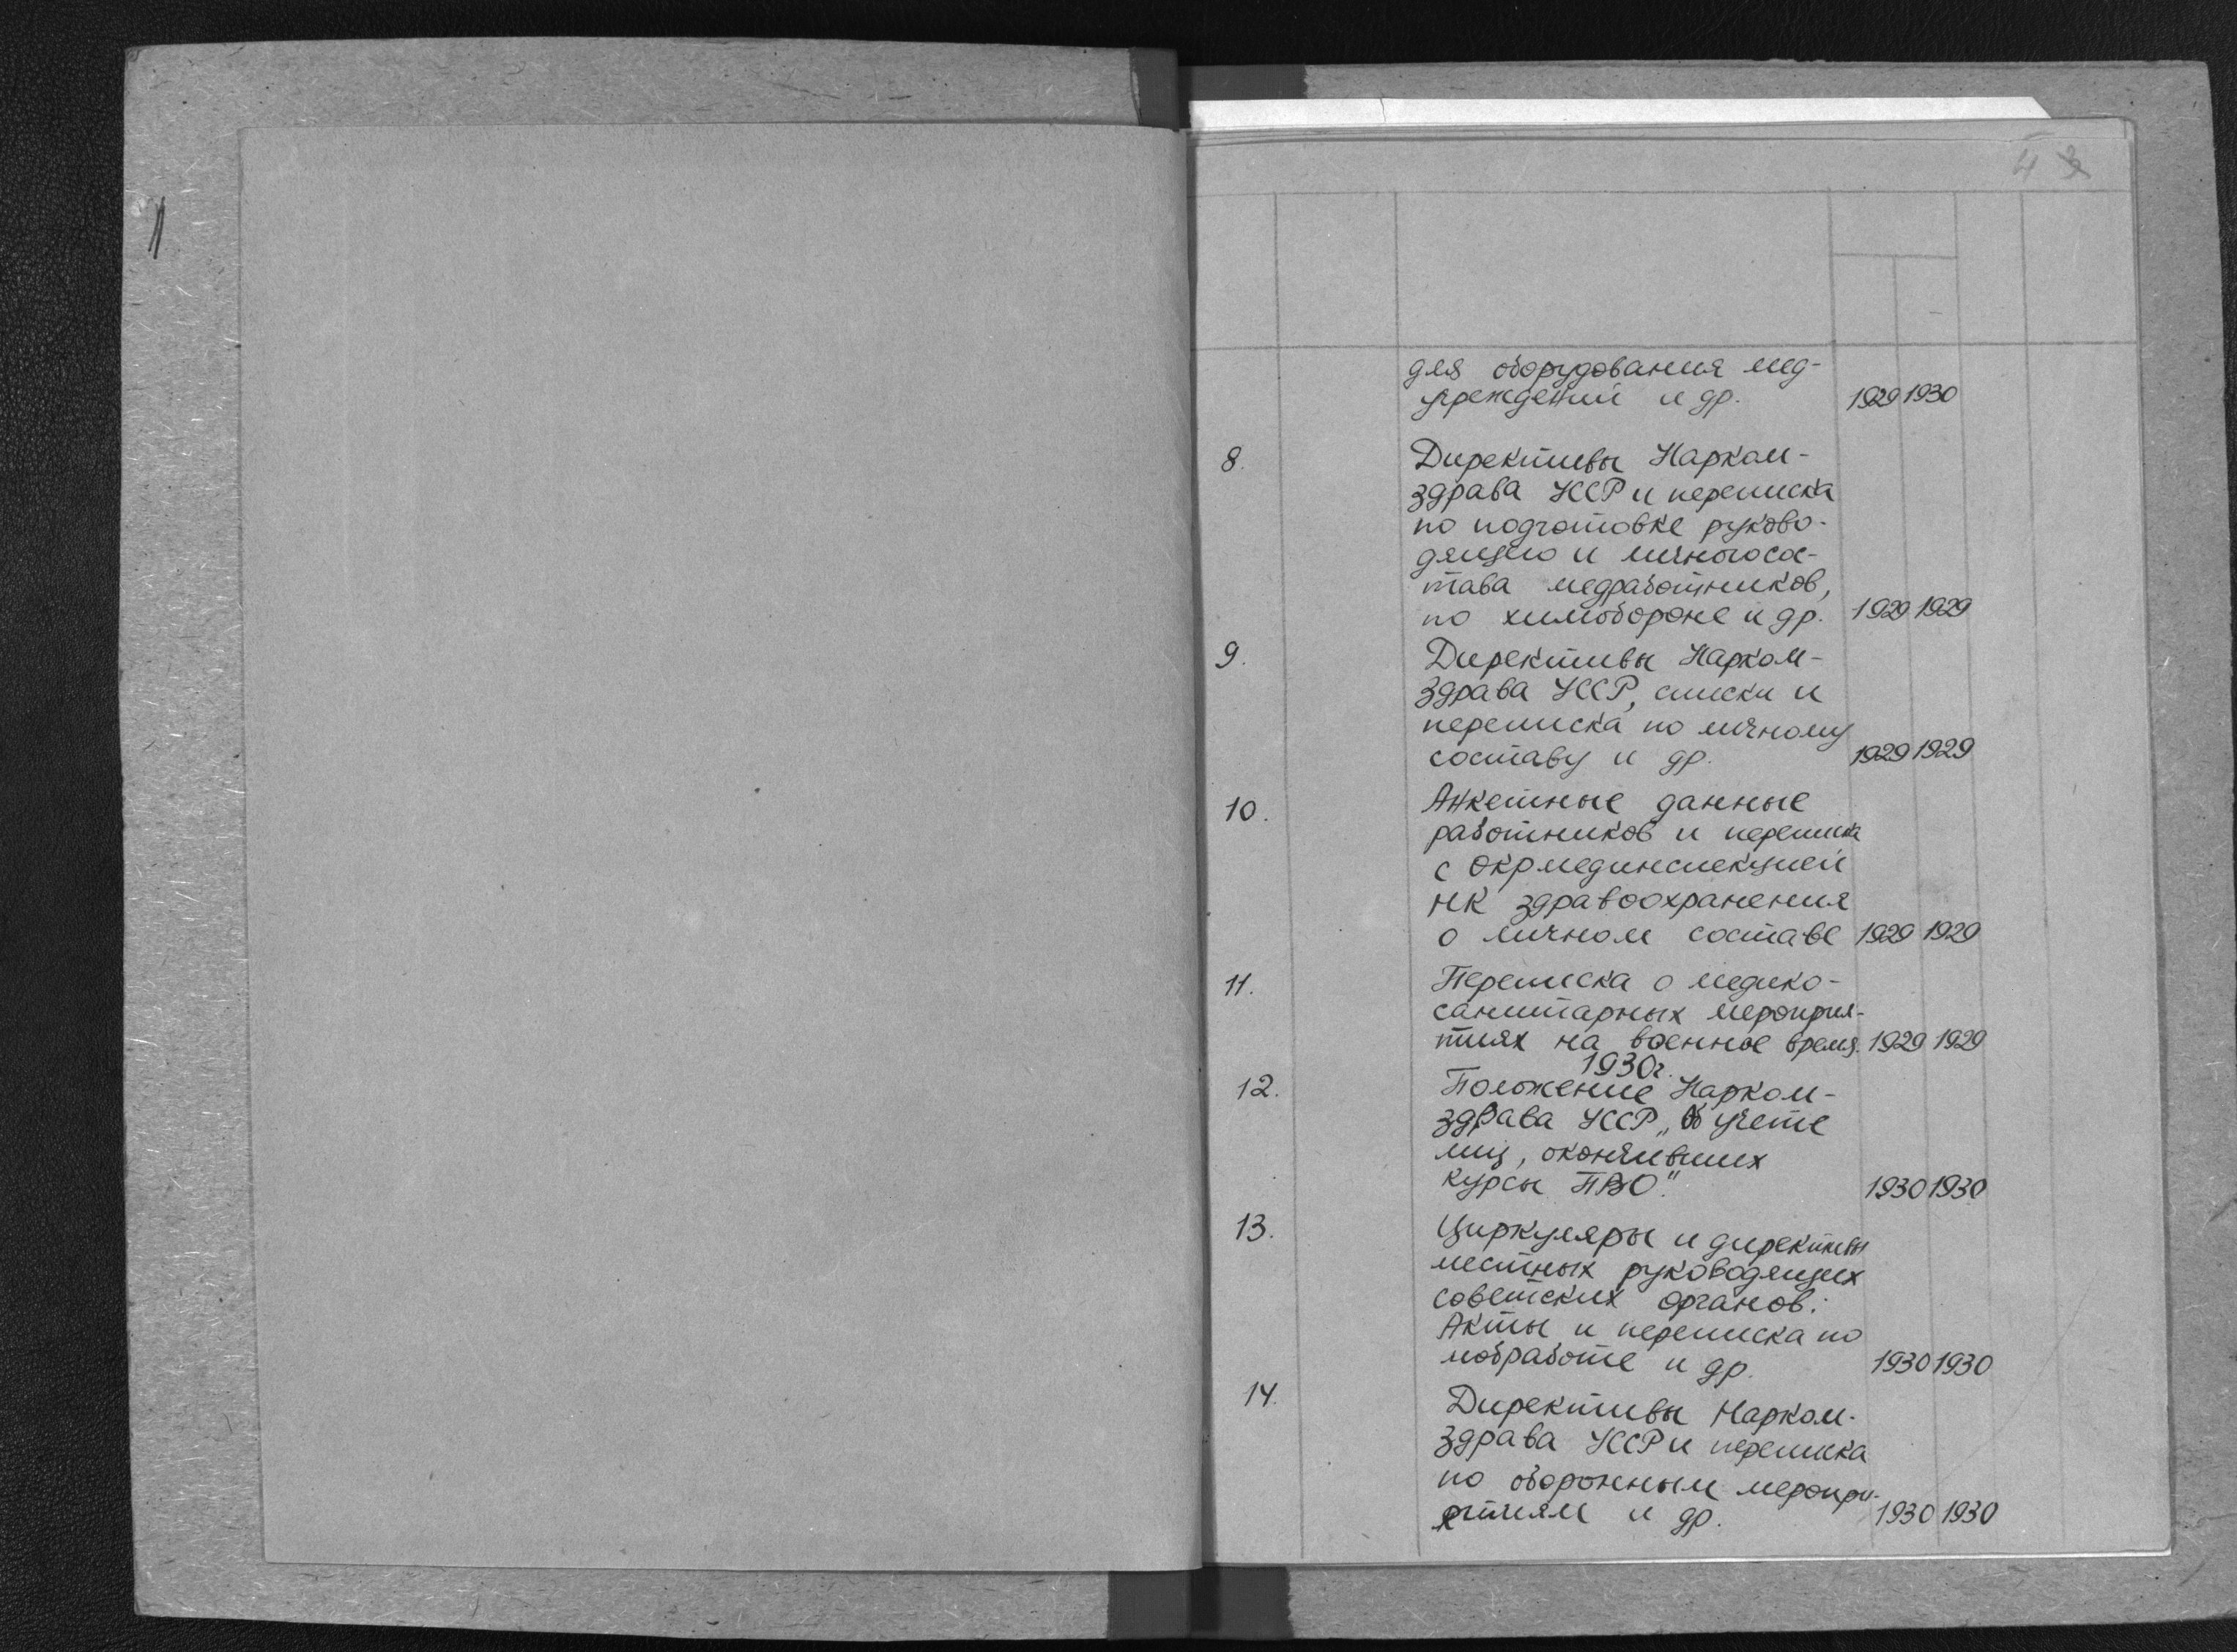 4 3
для оборудования мед-
учреждений и др. 1929 1930
8. Директивы Нарком-
здрава УССР и переписка
по подготовке руково-
дящего и личного сос-
тава медработников,
по химобороне и др. 1929 1929
9. Директивы Нарком-
здрава УССР, списки и
переписка по личному
составу и др. 1929 1929
10. Анкетные данные
работников и переписка
с Окрмединспекцией
НК здравоохранения
о личном составе 1929 1929
11. Переписка о медико-
санитарных мероприя-
тиях на военное время. 1929 1929
1930г.
12. Положение Нарком-
здрава УССР „Об учете
лиц, окончивших
курсы ПВО". 1930 1930
13. Циркуляры и директивы
местных руководящих
советских органов.
Акты и переписка по
мобработе и др. 1930 1930
14. Директивы Нарком-
здрава УССР и переписка
по оборонным меропри-
ятиям и др. 1930 1930